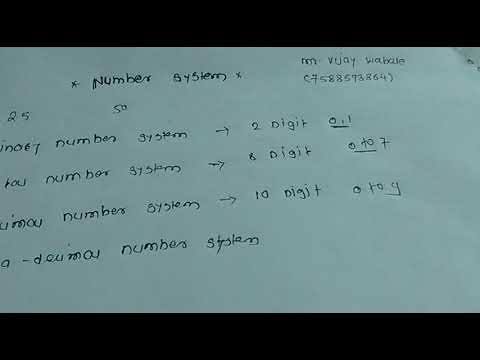 * Number System *
m. vijay wabale
(7588573864)
25 50
inary number system → 2 Digit 0,1
tal number system → 8 Digit 0 to 7
cimal number system → 10 Digit 0 to 9
a - decimal number system